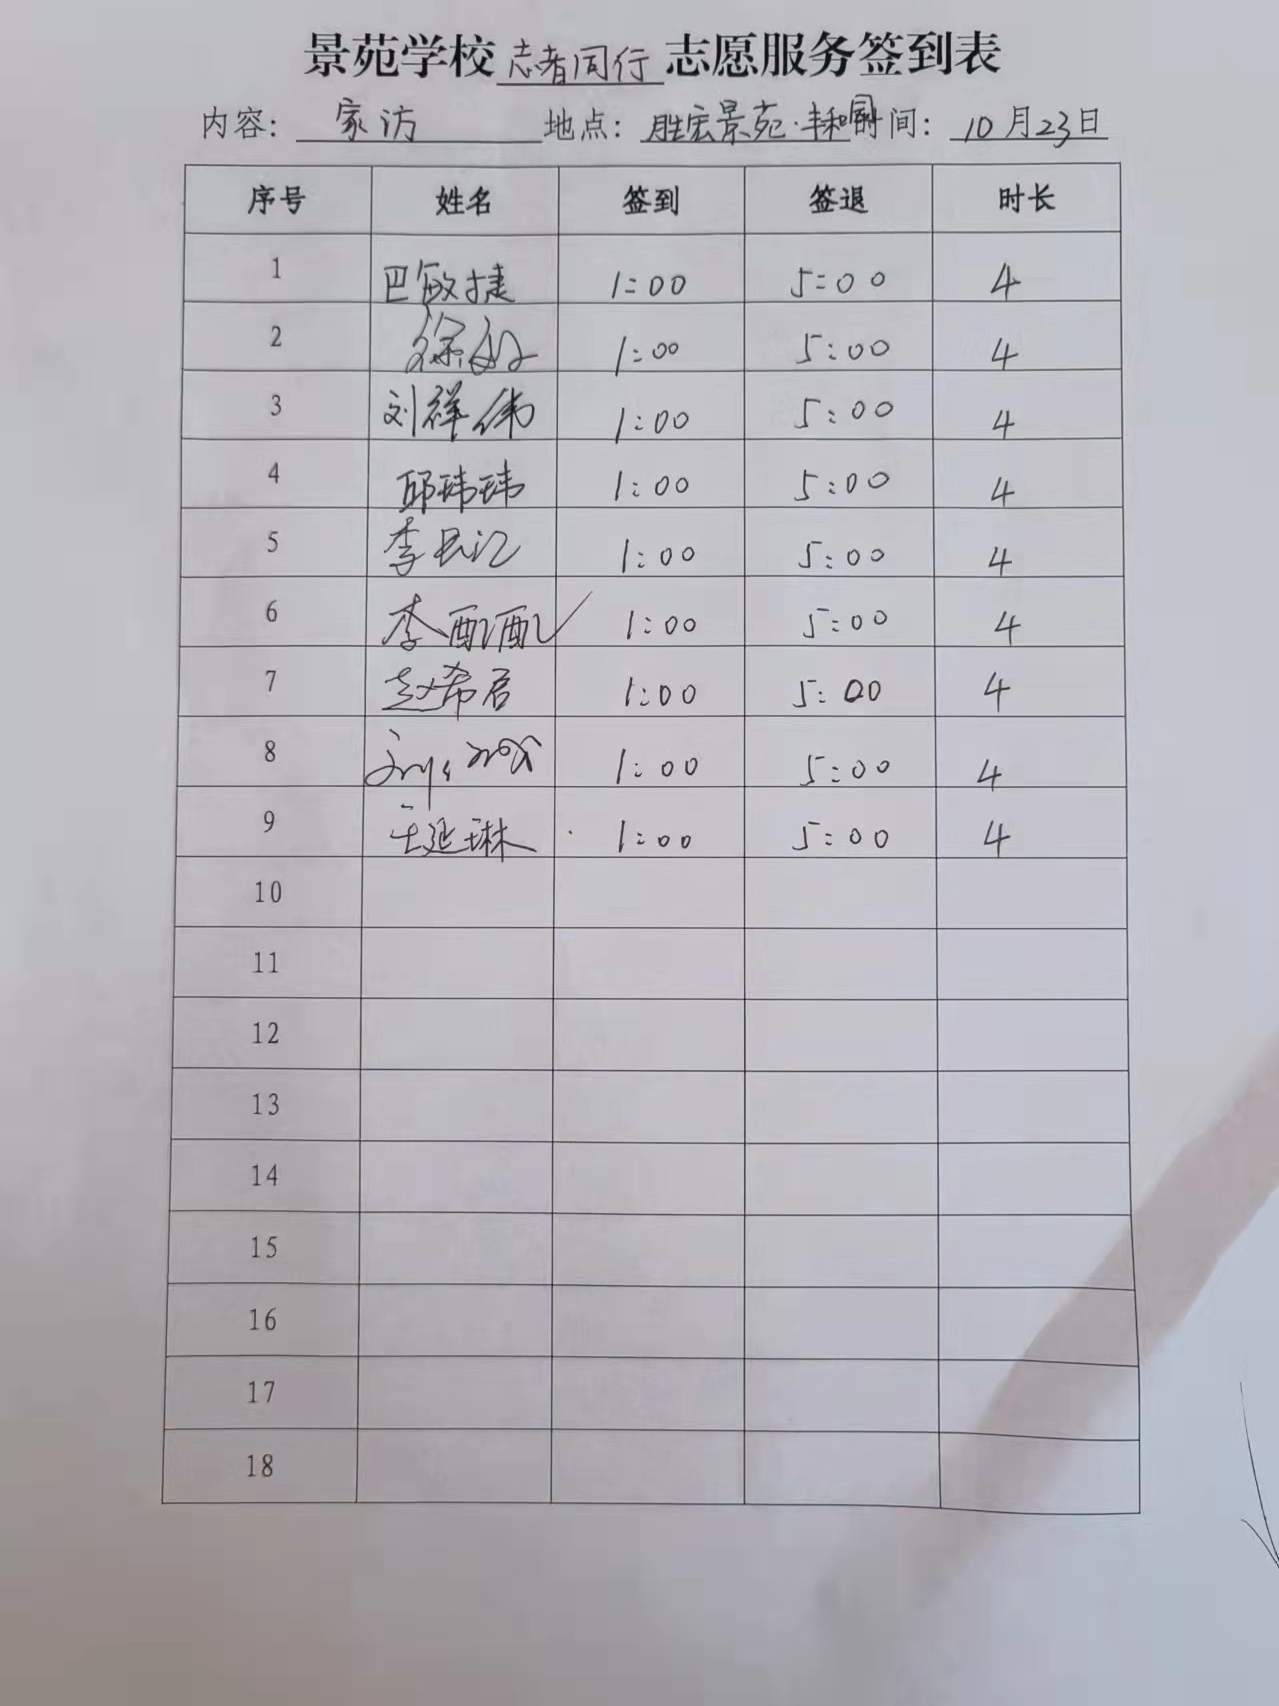 景苑学校志者同行志愿服务签到表
内容：家访 地点：胜宏景苑·丰和园 时间：10月23日
序号 姓名 签到 签退 时长
1 巴敏捷 1:00 5:00 4
2 徐 1:00 5:00 4
3 刘祥伟 1:00 5:00 4
4 邱玮玮 1:00 5:00 4
5 李长江 1:00 5:00 4
6 李配配 1:00 5:00 4
7 赵希君 1:00 5:00 4
8 1:00 5:00 4
9 王延琳 1:00 5:00 4
10
11
12
13
14
15
16
17
18